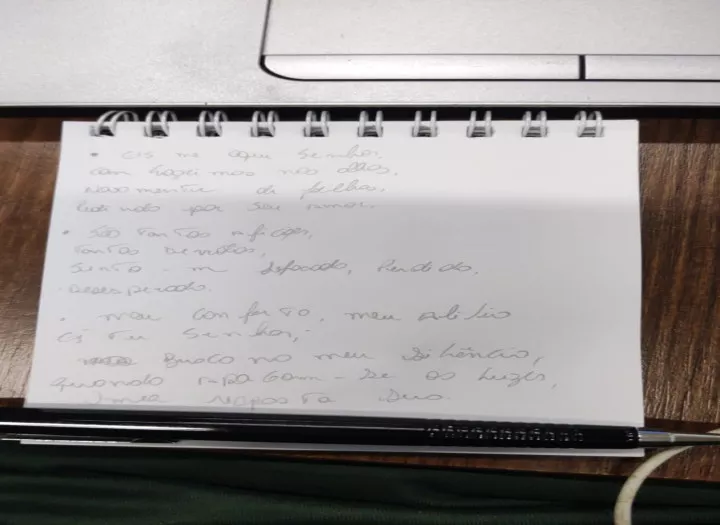 • Eis me aqui Senhor,
com lagrimas nos olhos,
novamente de joelhos,
pedindo por seu amor.
• São tantas aflições,
tantos
Sinto-m sufocado, Perdido,
desesperado.
• meu conforto, meu alívio
És tu Senhor,
no meu silêncio,
quando apagam-se as luzes,
uma resposta Sua.